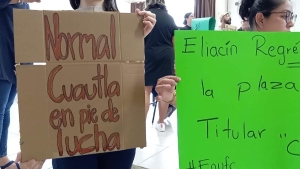 Normal
Cuautla
en pie de
lucha
Eliacín Regre
la plaza
Titular "C